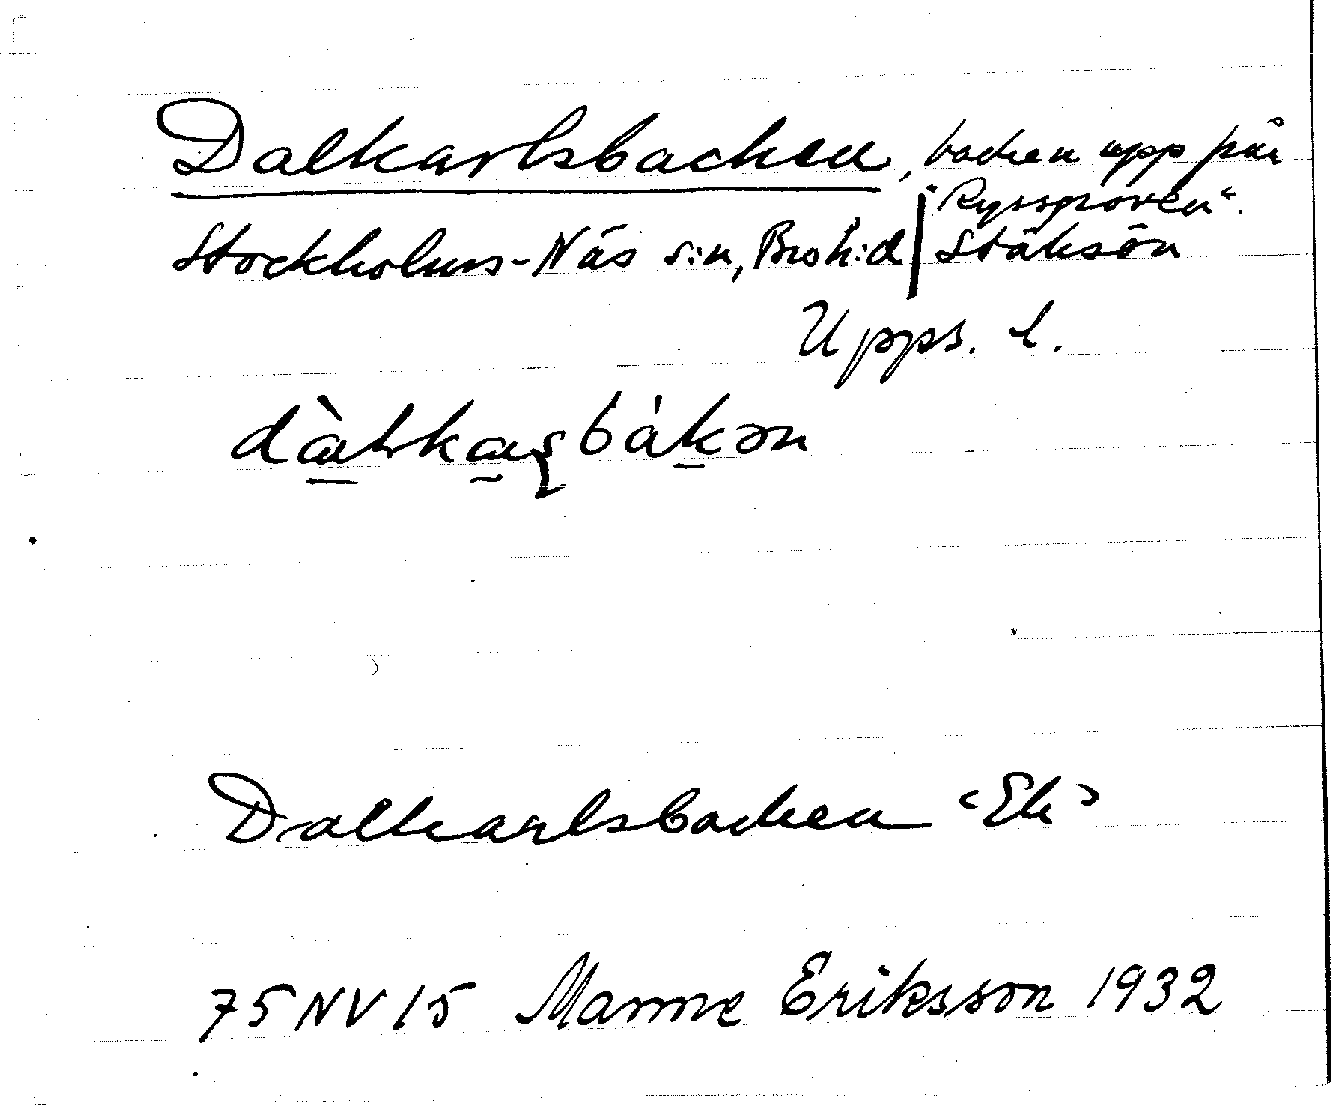 Dalkarlsbacken, backen upp på
"Ryssgraven".
Stockholms-Näs s:n, Bro h:d Stäksön
Upps. l.
Dalkarlsbacken "Ek"
75 NV 15 Manne Eriksson 1932